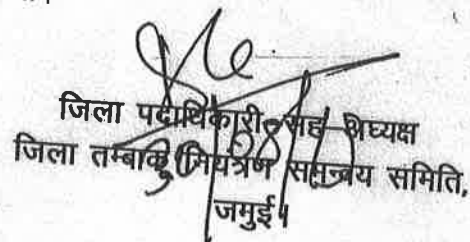 जिला पदाधिकारी-सह-अध्यक्ष
जिला तम्बाकू नियंत्रण समन्वय समिति,
जमुई।